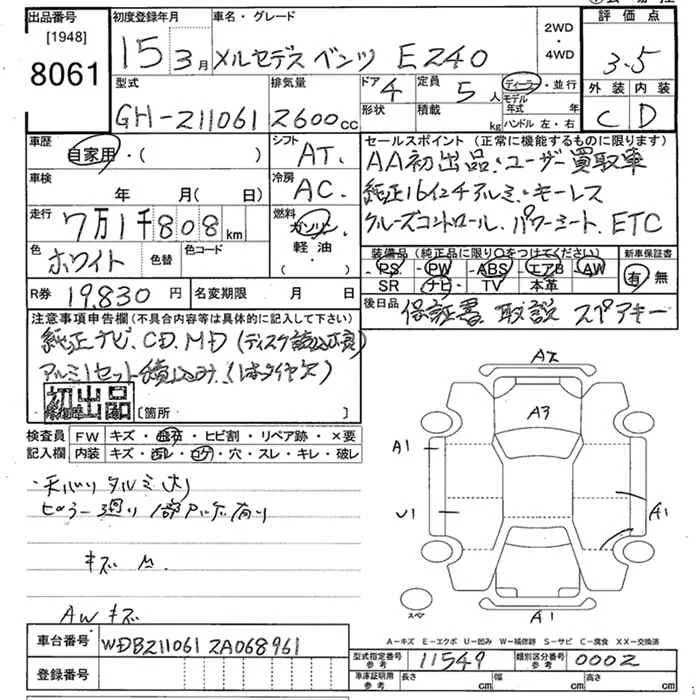 出品番号 初度登録年月 車名・グレード 2WD・4WD 評価点
[1948]
8061 15年3月 メルセデスベンツ E240 3.5
型式 排気量 ドア 4 定員 5人 ディーラー・並行 外装 内装
GH-211061 2600cc 形状 積載 kg モデル年式 年 C D
ハンドル 左・右
車歴 シフト セールスポイント(正常に機能するものに限ります)
自家用・( ) AT. AA初出品.ユーザー買取車
車検 年 月(日) 冷房 AC. 純正16インチアルミ.キーレス
走行 7万1千808km 燃料 ガソリン クルーズコントロール.パワーシート.ETC
色 ホワイト 色替 色コード 軽油 装備品(純正品に限り○をつけてください) 新車保証書
( ) PS・PW・ABS・エアB・AW 有・無
SR ナビ・TV 本革
R券 19,830円 名変期限 月 日 後日品 保証書 取説 スペアキー
注意事項申告欄(不具合内容等は具体的に記入して下さい)
純正ナビ.CD.MD(ディスク読込不良)
アルミ1セット積込み.(1本タイヤ欠)
初出品 [箇所 ]
検査員 FW キズ・飛石・ヒビ割・リペア跡・×要
記入欄 内装 キズ・汚レ・コゲ・穴・スレ・キレ・破レ
・天バリタルミ大
ピラー廻り 1部 有り
キズ M.
AWキズ
A2
A3
A1
U1 A1
スペア
A1
A-キズ E-エクボ U-凹み W-補修跡 S-サビ C-腐食 XX-交換済
車台番号 WDB2110612A068961 型式指定番号 参考 11549 類別区分番号 参考 0002
登録番号 車庫証明用 参考 長さ cm 幅 cm 高さ cm